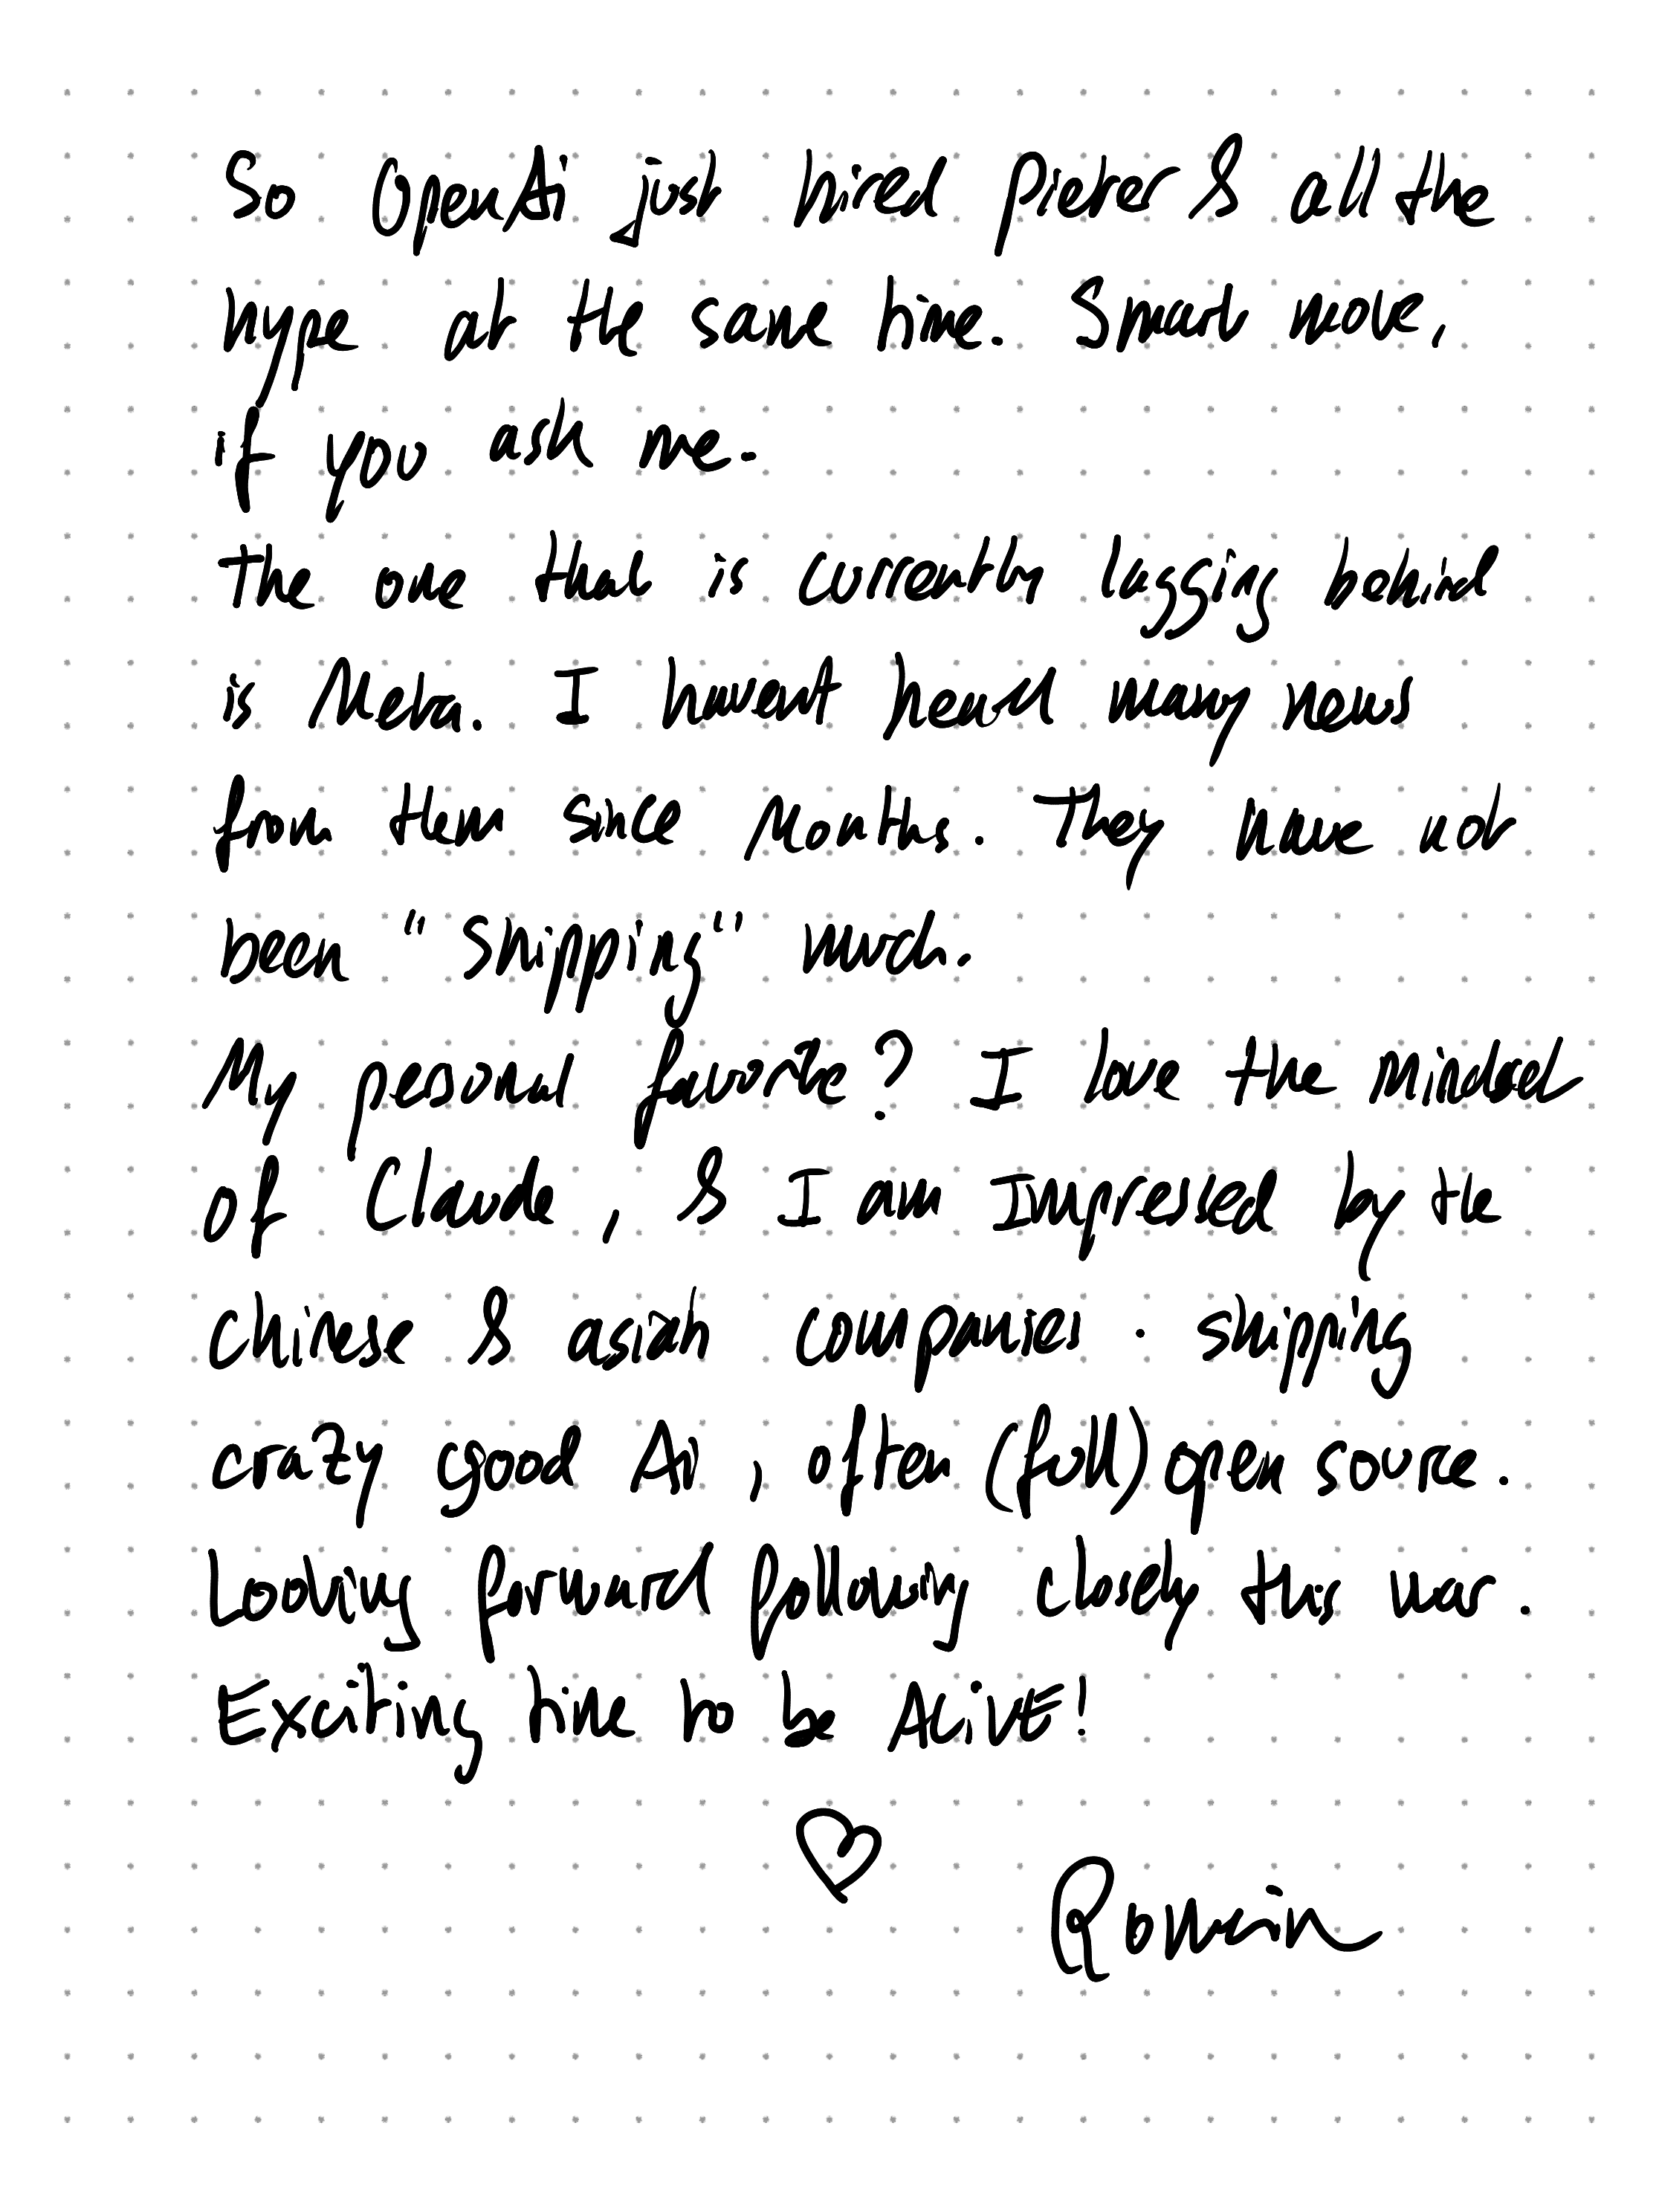 So OpenAi just hired Pieter & all the
hype at the same time. Smart move,
if you ask me.
The one that is currently lagging behind
is Meta. I havent heard many news
from them since Months. They have not
been "shipping" much.
My pesonal favorite? I love the Mindset
of Claude, & I am Impressed by the
chinese & asian companies. shipping
crazy good Ai, often (full) open source.
Looking forward following closely this war.
Exciting time to be ALiVE!
Romain